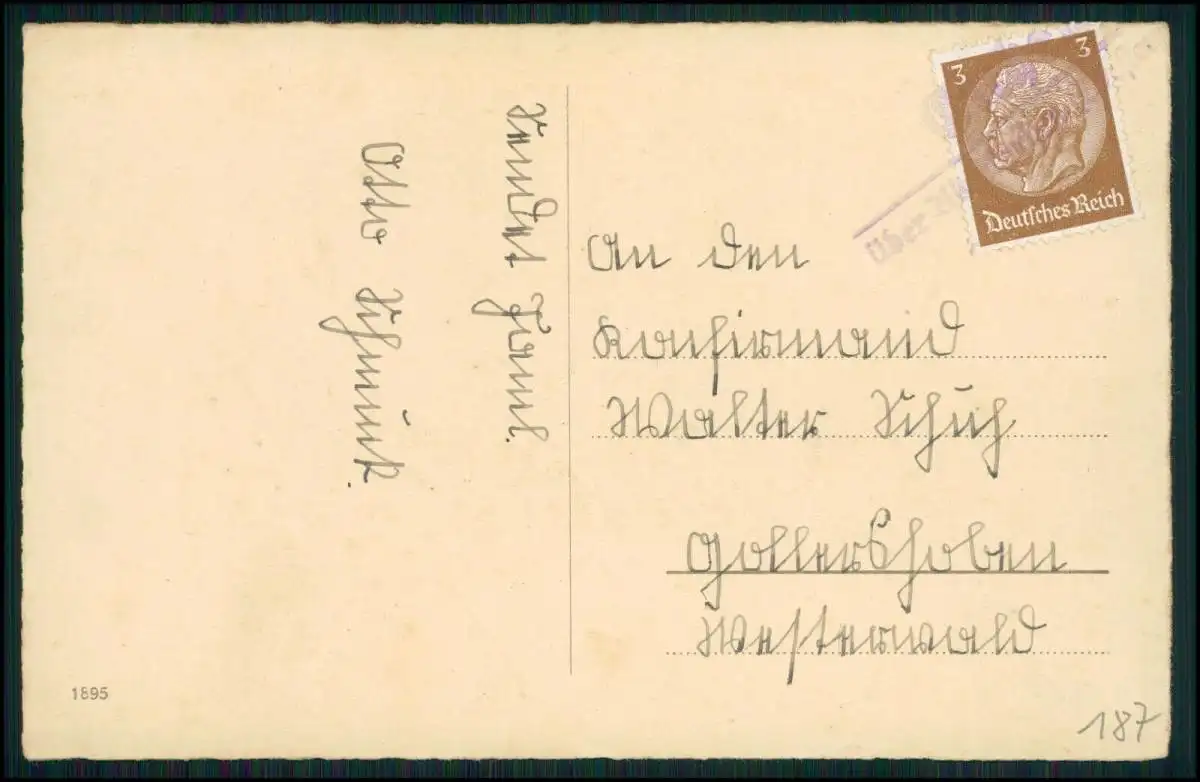 3 3
Deutsches Reich
über
Sendet Famil.
Otto Schmuck.
An den
Konfirmand
Walter Schuh
Gollershoben
Westerwald
1895
187